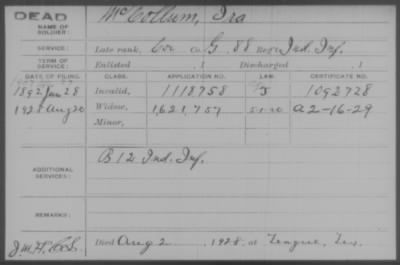 DEAD
NAME OF
SOLDIER:
McCollum, Ira
SERVICE:
Late rank, Co. G, 88 Reg't Ind. Inf.
TERM OF
SERVICE:
Enlisted , 1 Discharged , 1
DATE OF FILING. CLASS. APPLICATION NO. LAW. CERTIFICATE NO.
1892 Jan 28 Invalid, 1118758 1092728
1928 Aug 20 Widow, 1,621,757 5-1-20 A 2-16-29
Minor,
ADDITIONAL
SERVICES:
B 12 Ind. Inf.
REMARKS:
Died Aug 2, 1928, at Teague, Tex.